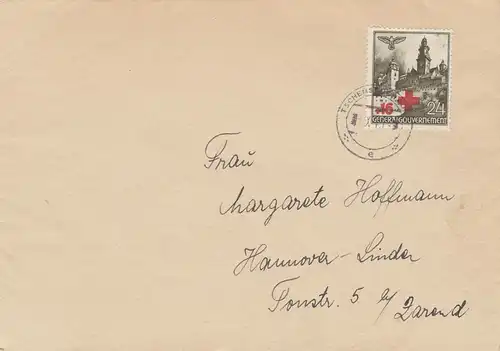 TSCHENS
+16
24
GENERALGOUVERNEMENT
e
Frau
Margarete Hoffmann
Hannover-Linden
Tonstr. 5 b/ Zarend